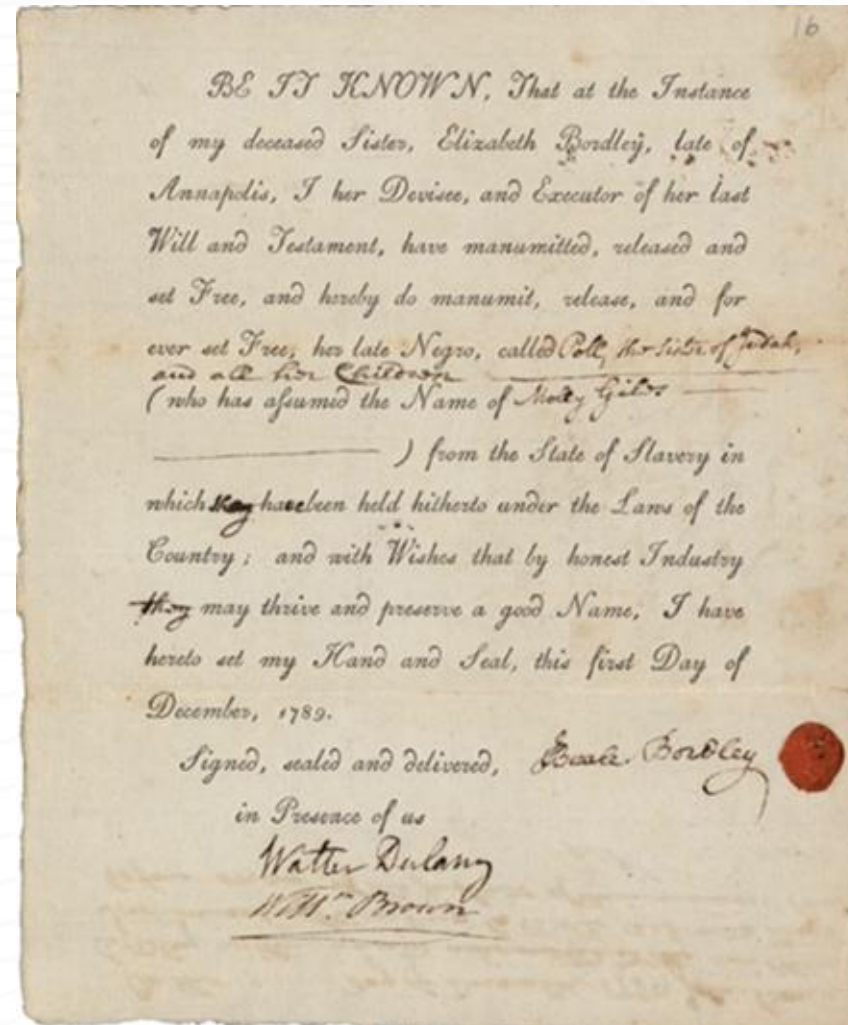 16
BE IT KNOWN, That at the Instance
of my deceased Sister, Elizabeth Bordley, late of
Annapolis, I her Devisee, and Executor of her last
Will and Testament, have manumitted, released and
set Free, and hereby do manumit, release, and for
ever set Free, her late Negro, called Poll, the Sister of Judah,
and all her Children
(who has assumed the Name of Molly Giles
) from the State of Slavery in
which they have been held hitherto under the Laws of the
Country; and with Wishes that by honest Industry
they may thrive and preserve a good Name, I have
hereto set my Hand and Seal, this first Day of
December, 1789.
Signed, sealed and delivered, Beale Bordley
in Presence of us
Walter Dulany
Willm Brown